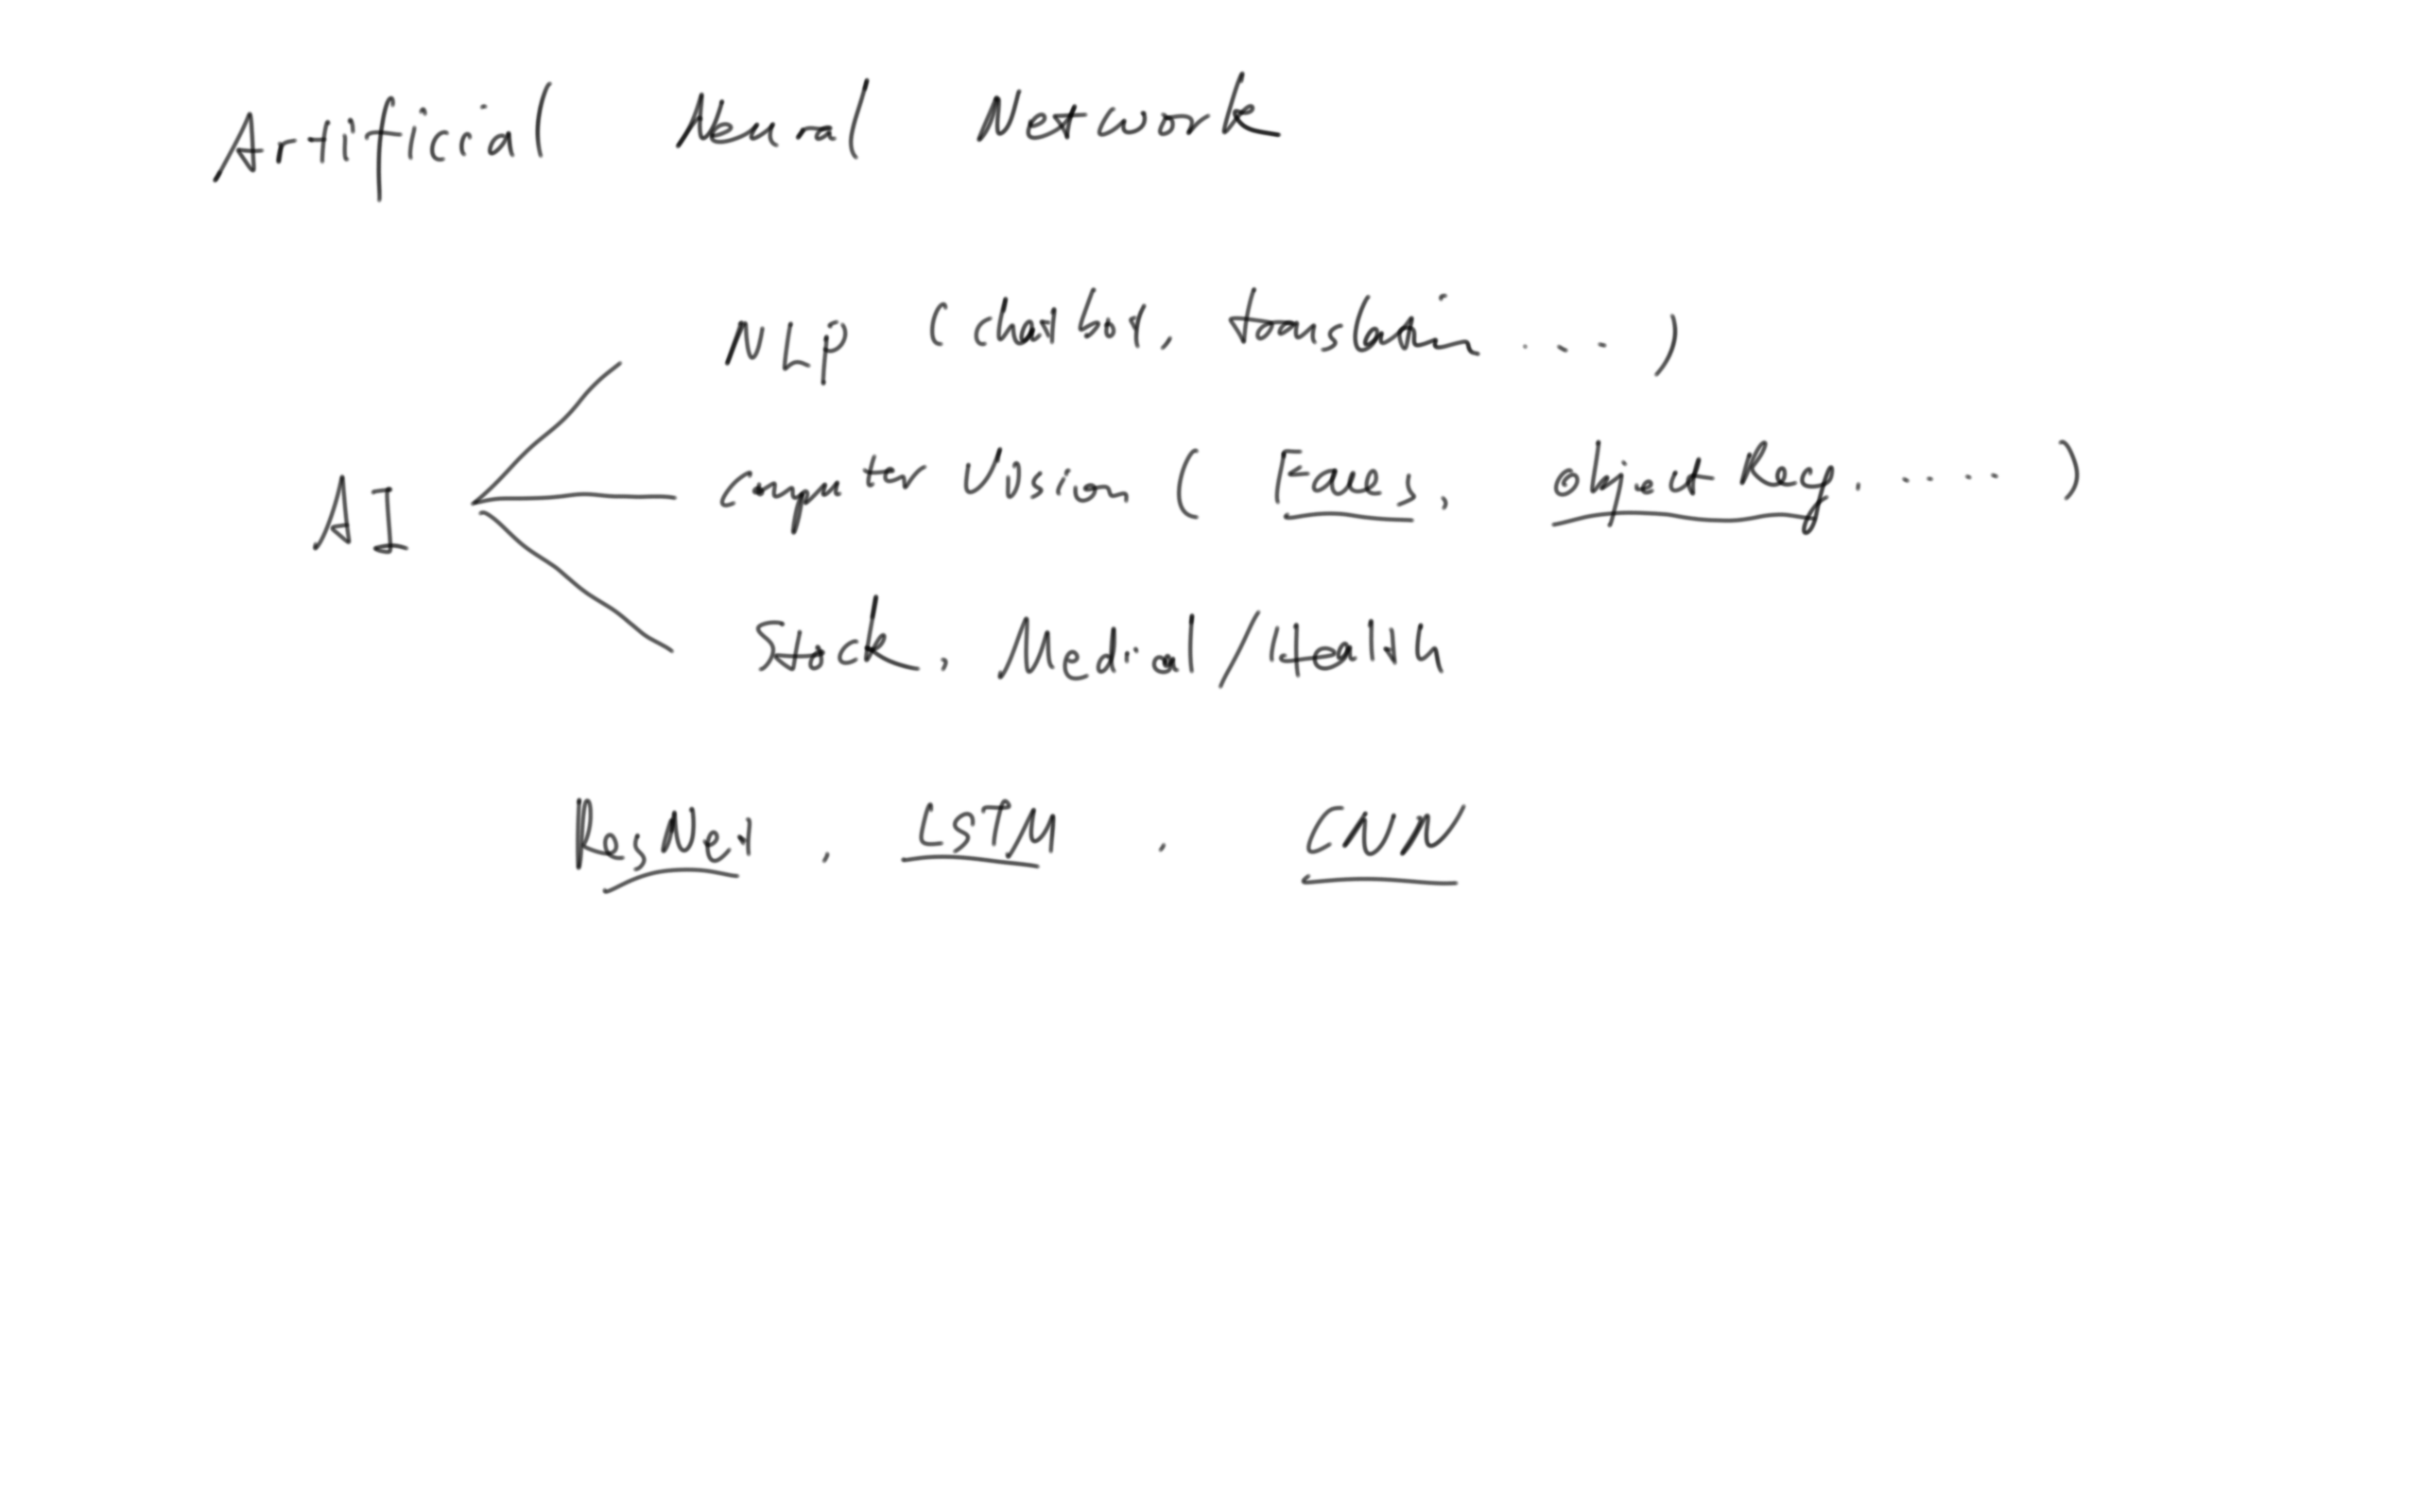 Artificial Neural Network
NLP (chatbot, translation ....)
AI
computer Vision ( Faces, object Recg. .... )
Stock, Medical/Health
ResNet, LSTM, CNN